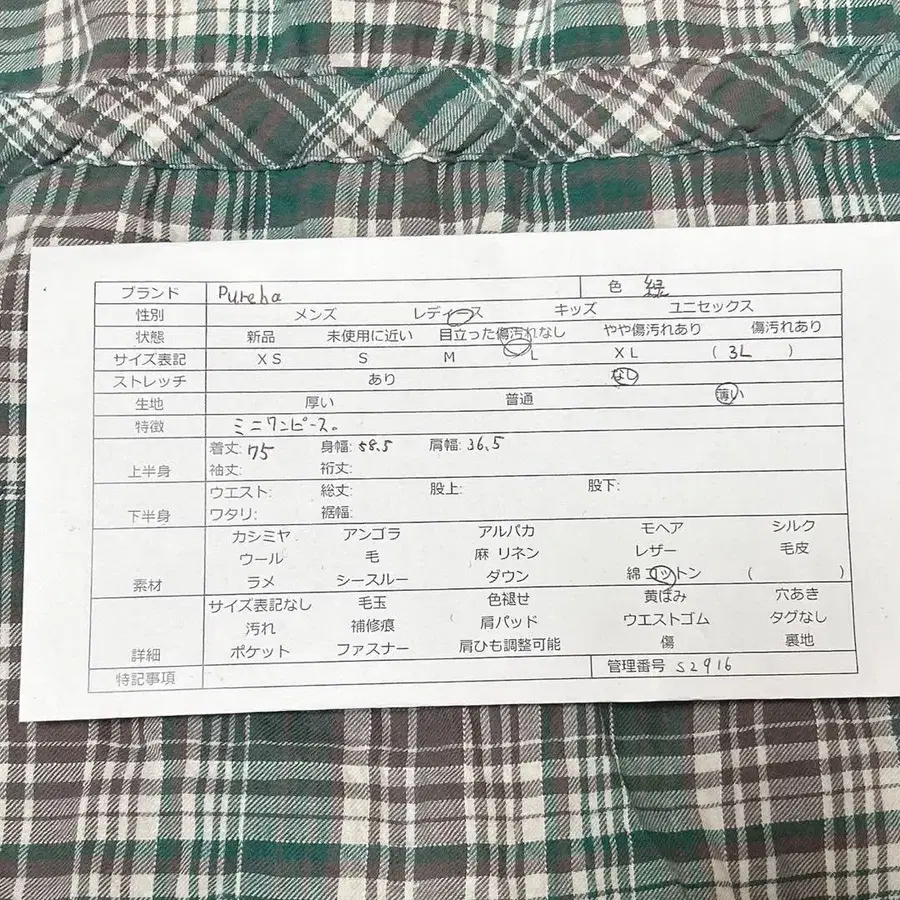 ブランド Pureha 色 緑
性別 メンズ レディース キッズ ユニセックス
状態 新品 未使用に近い 目立った傷汚れなし やや傷汚れあり 傷汚れあり
サイズ表記 XS S M L XL ( 3L )
ストレッチ あり なし
生地 厚い 普通 薄い
特徴 ミニワンピース。
着丈: 75 身幅: 58.5 肩幅: 36.5
上半身 袖丈: 裄丈:
ウエスト: 総丈: 股上: 股下:
下半身 ワタリ: 裾幅:
カシミヤ アンゴラ アルパカ モヘア シルク
ウール 毛 麻 リネン レザー 毛皮
素材 ラメ シースルー ダウン 綿 コットン ( )
サイズ表記なし 毛玉 色褪せ 黄ばみ 穴あき
汚れ 補修痕 肩パッド ウエストゴム タグなし
詳細 ポケット ファスナー 肩ひも調整可能 傷 裏地
特記事項 管理番号 S2916